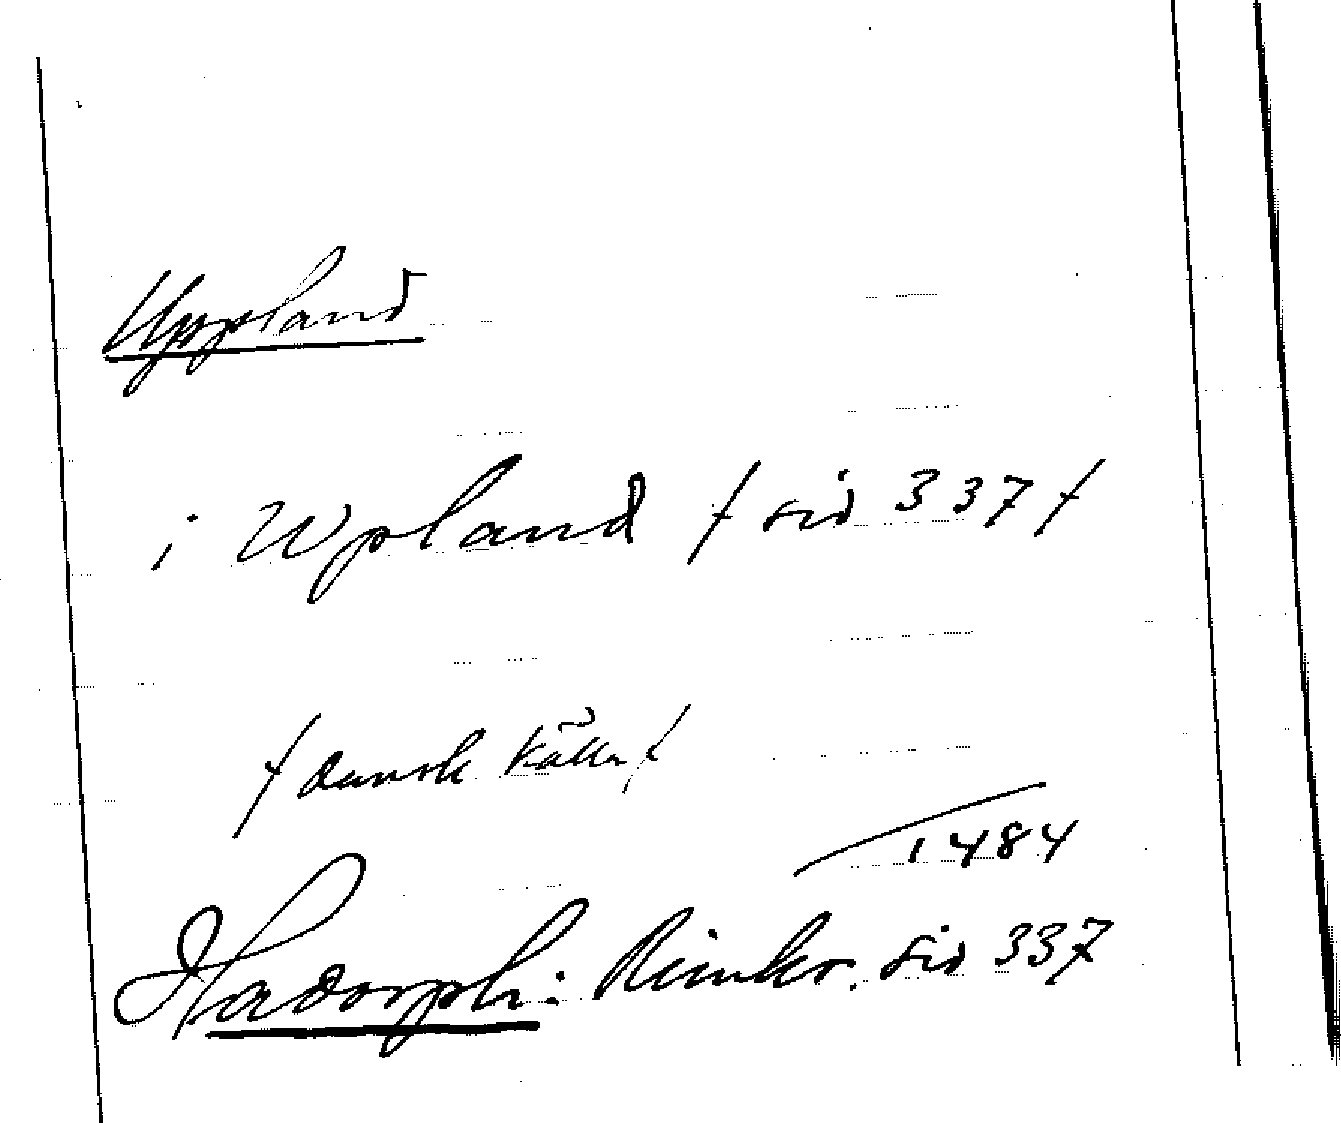 Uppland
i Wpland / sid 337 /
/ dansk källa /
1484
Hadorph: Rimkr. sid 337